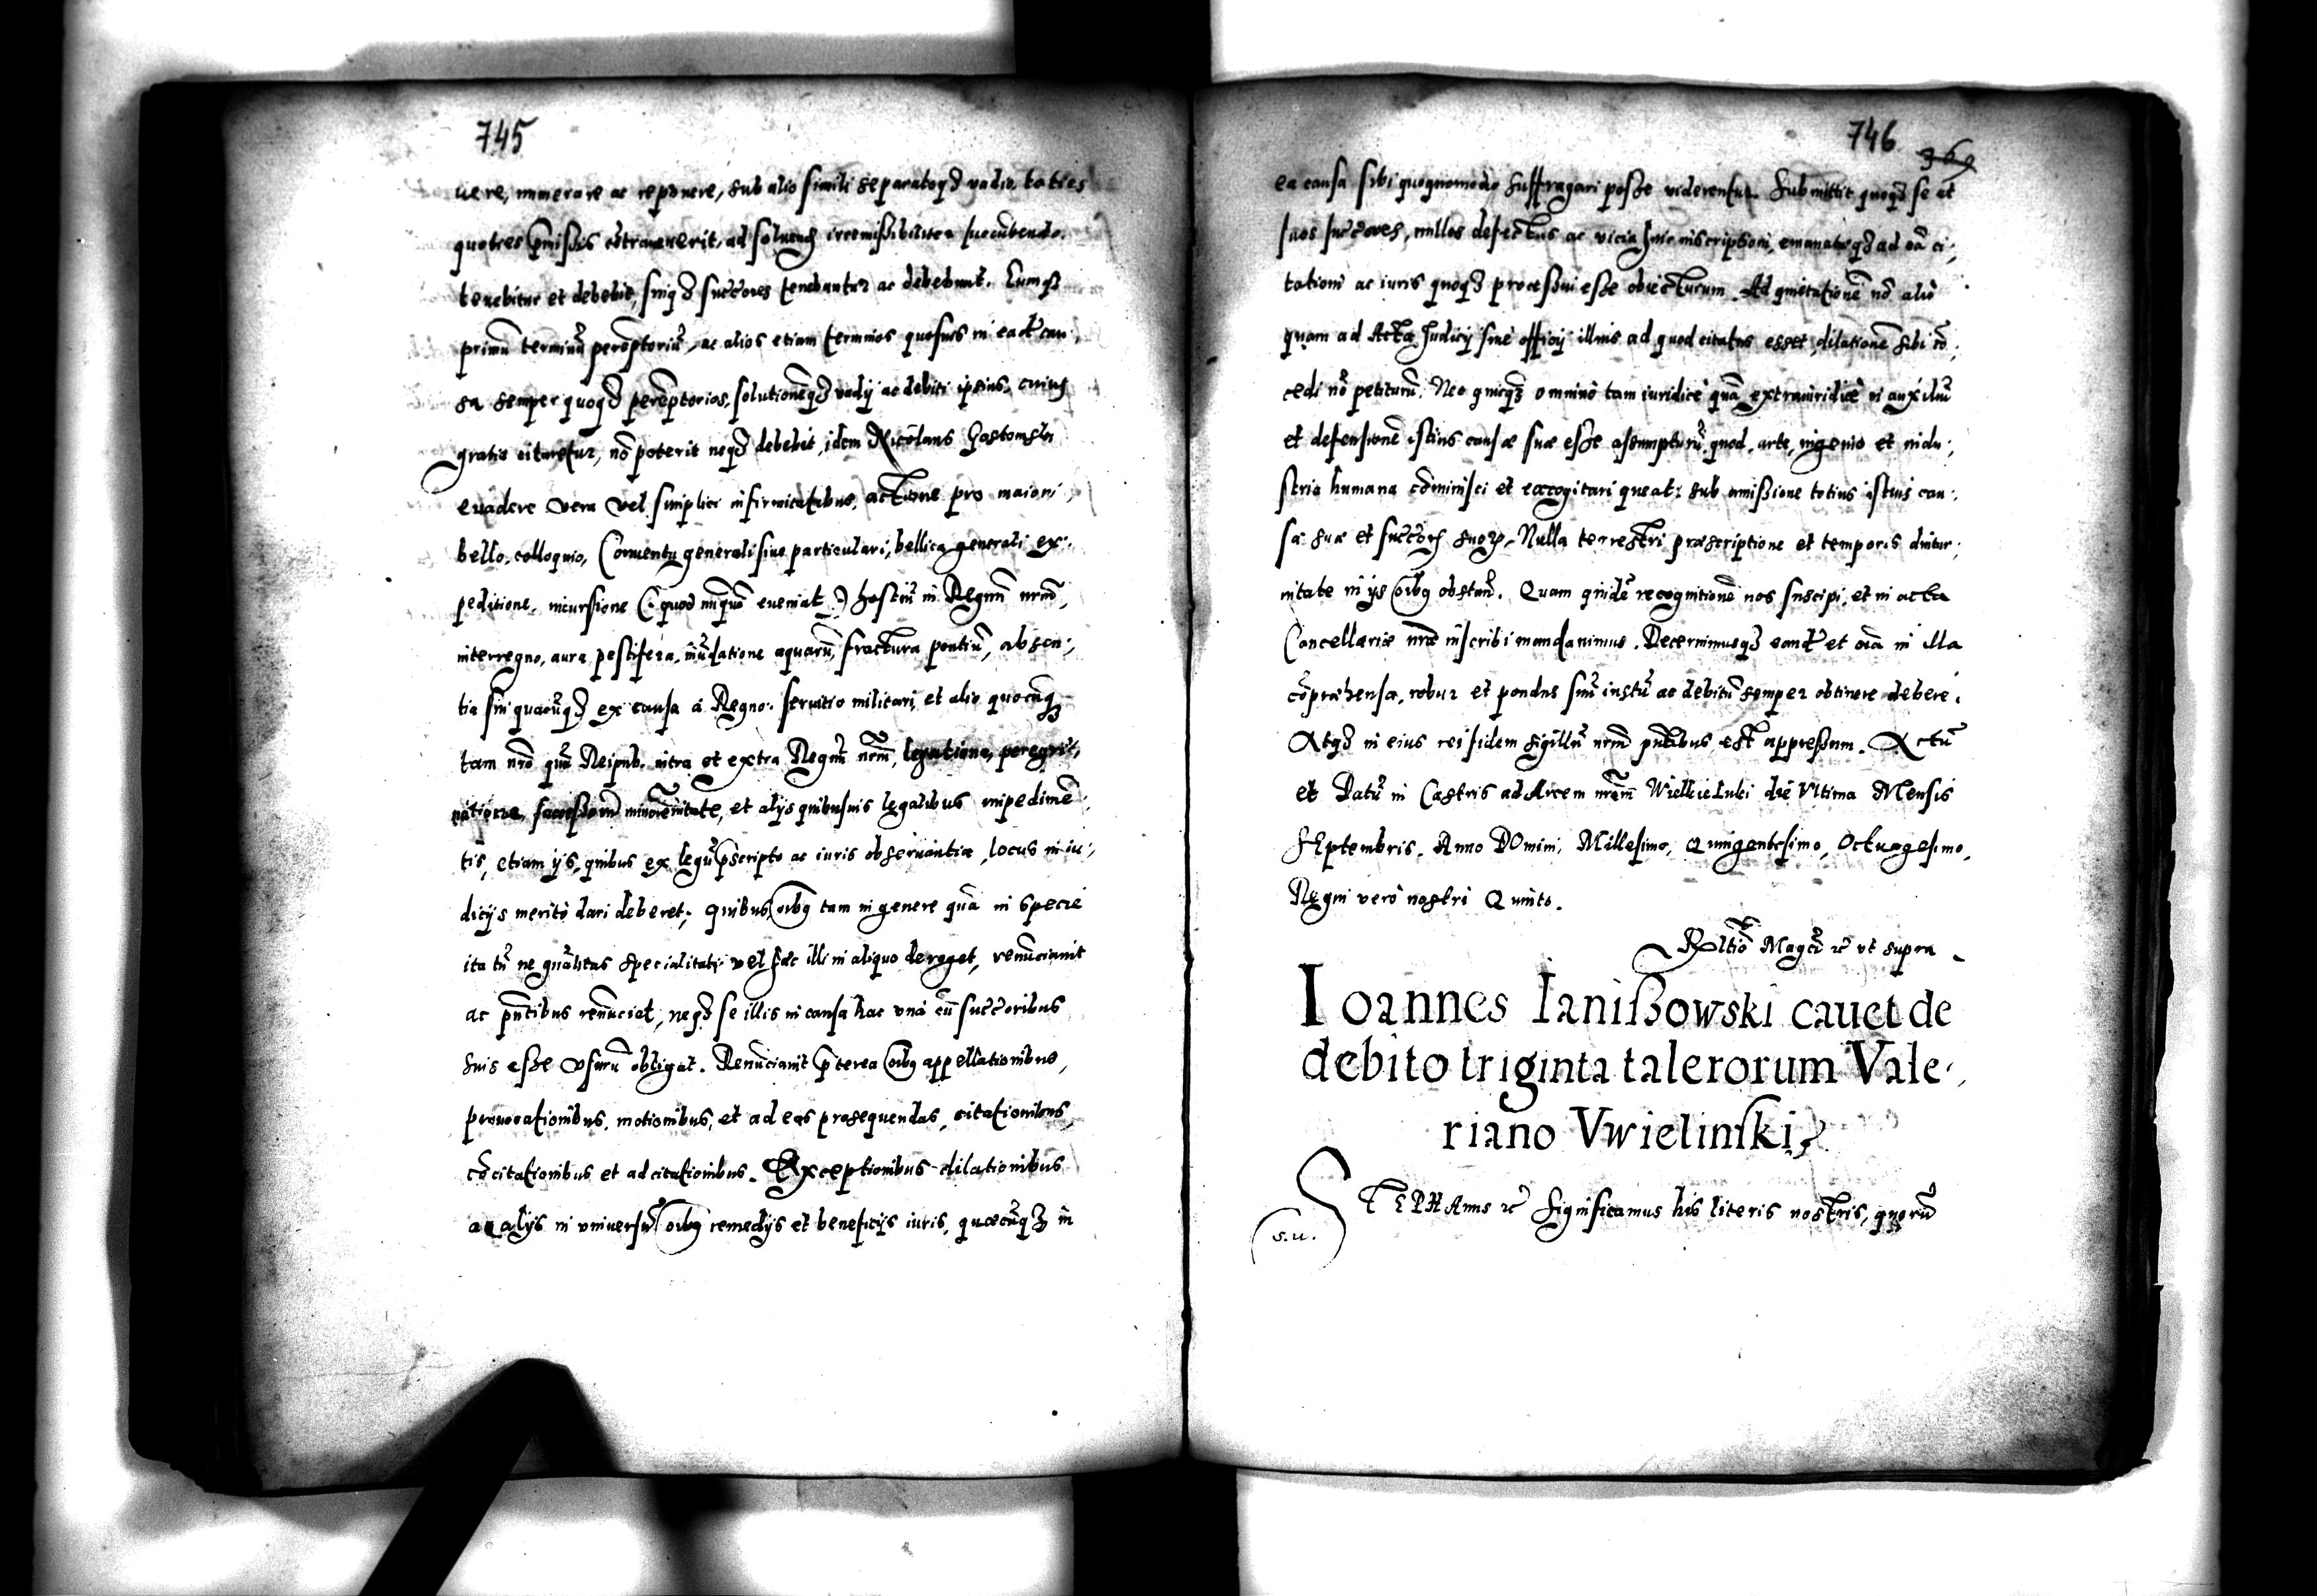 745
uere, numerare ac reponere, sub alio simili separatoqȝ vadio, toties
quoties p̄missis cōtrauenerit, ad soluend irremissibiliter succūbendo.
tenebitur et debebit, suiqȝ succōres tenebuntur ac debebunt. Cumqȝ
primū terminū perēptoriū, ac alios etiam terminos quosuis in ead cau;
sa semper quoqȝ perēptorios, solutionēqȝ vadij ac debiti ipsius, cuius
gratia citaretur, nō poterit neqȝ debebit, idem Nicolaus Gostomski
euadere vera vel simplici infirmitatibus, actione pro maiori,
bello, colloquio, Conuentu generali siue particulari, bellica generali ex:
peditione, incursione (: quod nūquā eueniat :) hostiū in Regnū nrm̄,
interregno, aura pestifera, inūdatione aquarū, fractura pontiū, absen;
tia sui quacūqȝ ex causa á Regno: seruitio militari, et alio quocūqȝ
tam nrō quā Reipub. intra et extra Regnū nrm̄, legatione, peregri;
natione, successorū minorēnitate, et alijs quibusuis legalibus impedimē;
tis, etiam ijs, quibus ex legū p̄scripto ac iuris obseruantia, locus in iu;
dicijs meritò dari deberet; quibus oībq tam in genere quā in specie
ita tn̄ ne gnālitas specialitati vel hæc illi in aliquo deroget, renūciauit
ac pn̄tibus renūciat, neqȝ se illis in causa hac vná cū succ̄oribus
suis esse vsurū obligat. Renūciauit p̄terea oībq appellationibus,
prouocationibus, motionibus, et ad eas prosequendas, citationibus,
cōcitationibus et adcitationibus. Exceptionibus dilationibus
ac alijs in vniuersū oībq remedijs et beneficijs iuris, quæcūqȝ in
746
369
ea causa sibi quoquomodo suffragari posse viderentur. Submittit quoqȝ se et
suos succ̄ores, nullos defectus ac vicia huic inscriptioni, emanatæqȝ ad eā ci;
tationi ac iuris quoqȝ processui esse obiecturum. Ad quietationē nō alió
quam ad Acta Judicij siue officij illius ad quod citatus esset, dilationē sibi cō;
cedi nō petiturū. Neo quicqȝ omninò tam iuridicè quā extraiuridicè in auxiliū
et defensionē istius causæ suæ esse assumpturū, quod, arte, ingenio et indu;
stria humana cōminisci et excogitari queat: sub amissione totius istius cau;
sæ suæ et succ̄or suor, Nulla terrestri præscriptione et temporis diutur;
nitate in ijs oībq obstan. Quam quidē recognitionē nos suscipi, et in acta
Cancellariæ nræ inscribi mandauimus. Decernimusqȝ eand et oīa in illa
cōpræhensa, robur et pondus suū iustū ac debitū semper obtinere debere.
Atqȝ in eius rei fidem sigillū nrm̄ pn̄tibus est appressum. Actū
et Datū in Castris ad Arcem nrām Wielkie Luki die Vltima Mensis
SEptembris. Anno DOmini, Millesimo, Quingentesimo, Octuagesimo,
Regni verò nostri Quinto.
Rltio Magci rc̄ vt supra
Ioannes Ianißowski cauet de
debito triginta talerorum Vale,
riano Vwielinski,
STEPHAnus rc̄ Significamus his literis nostris, quorū
s.u.